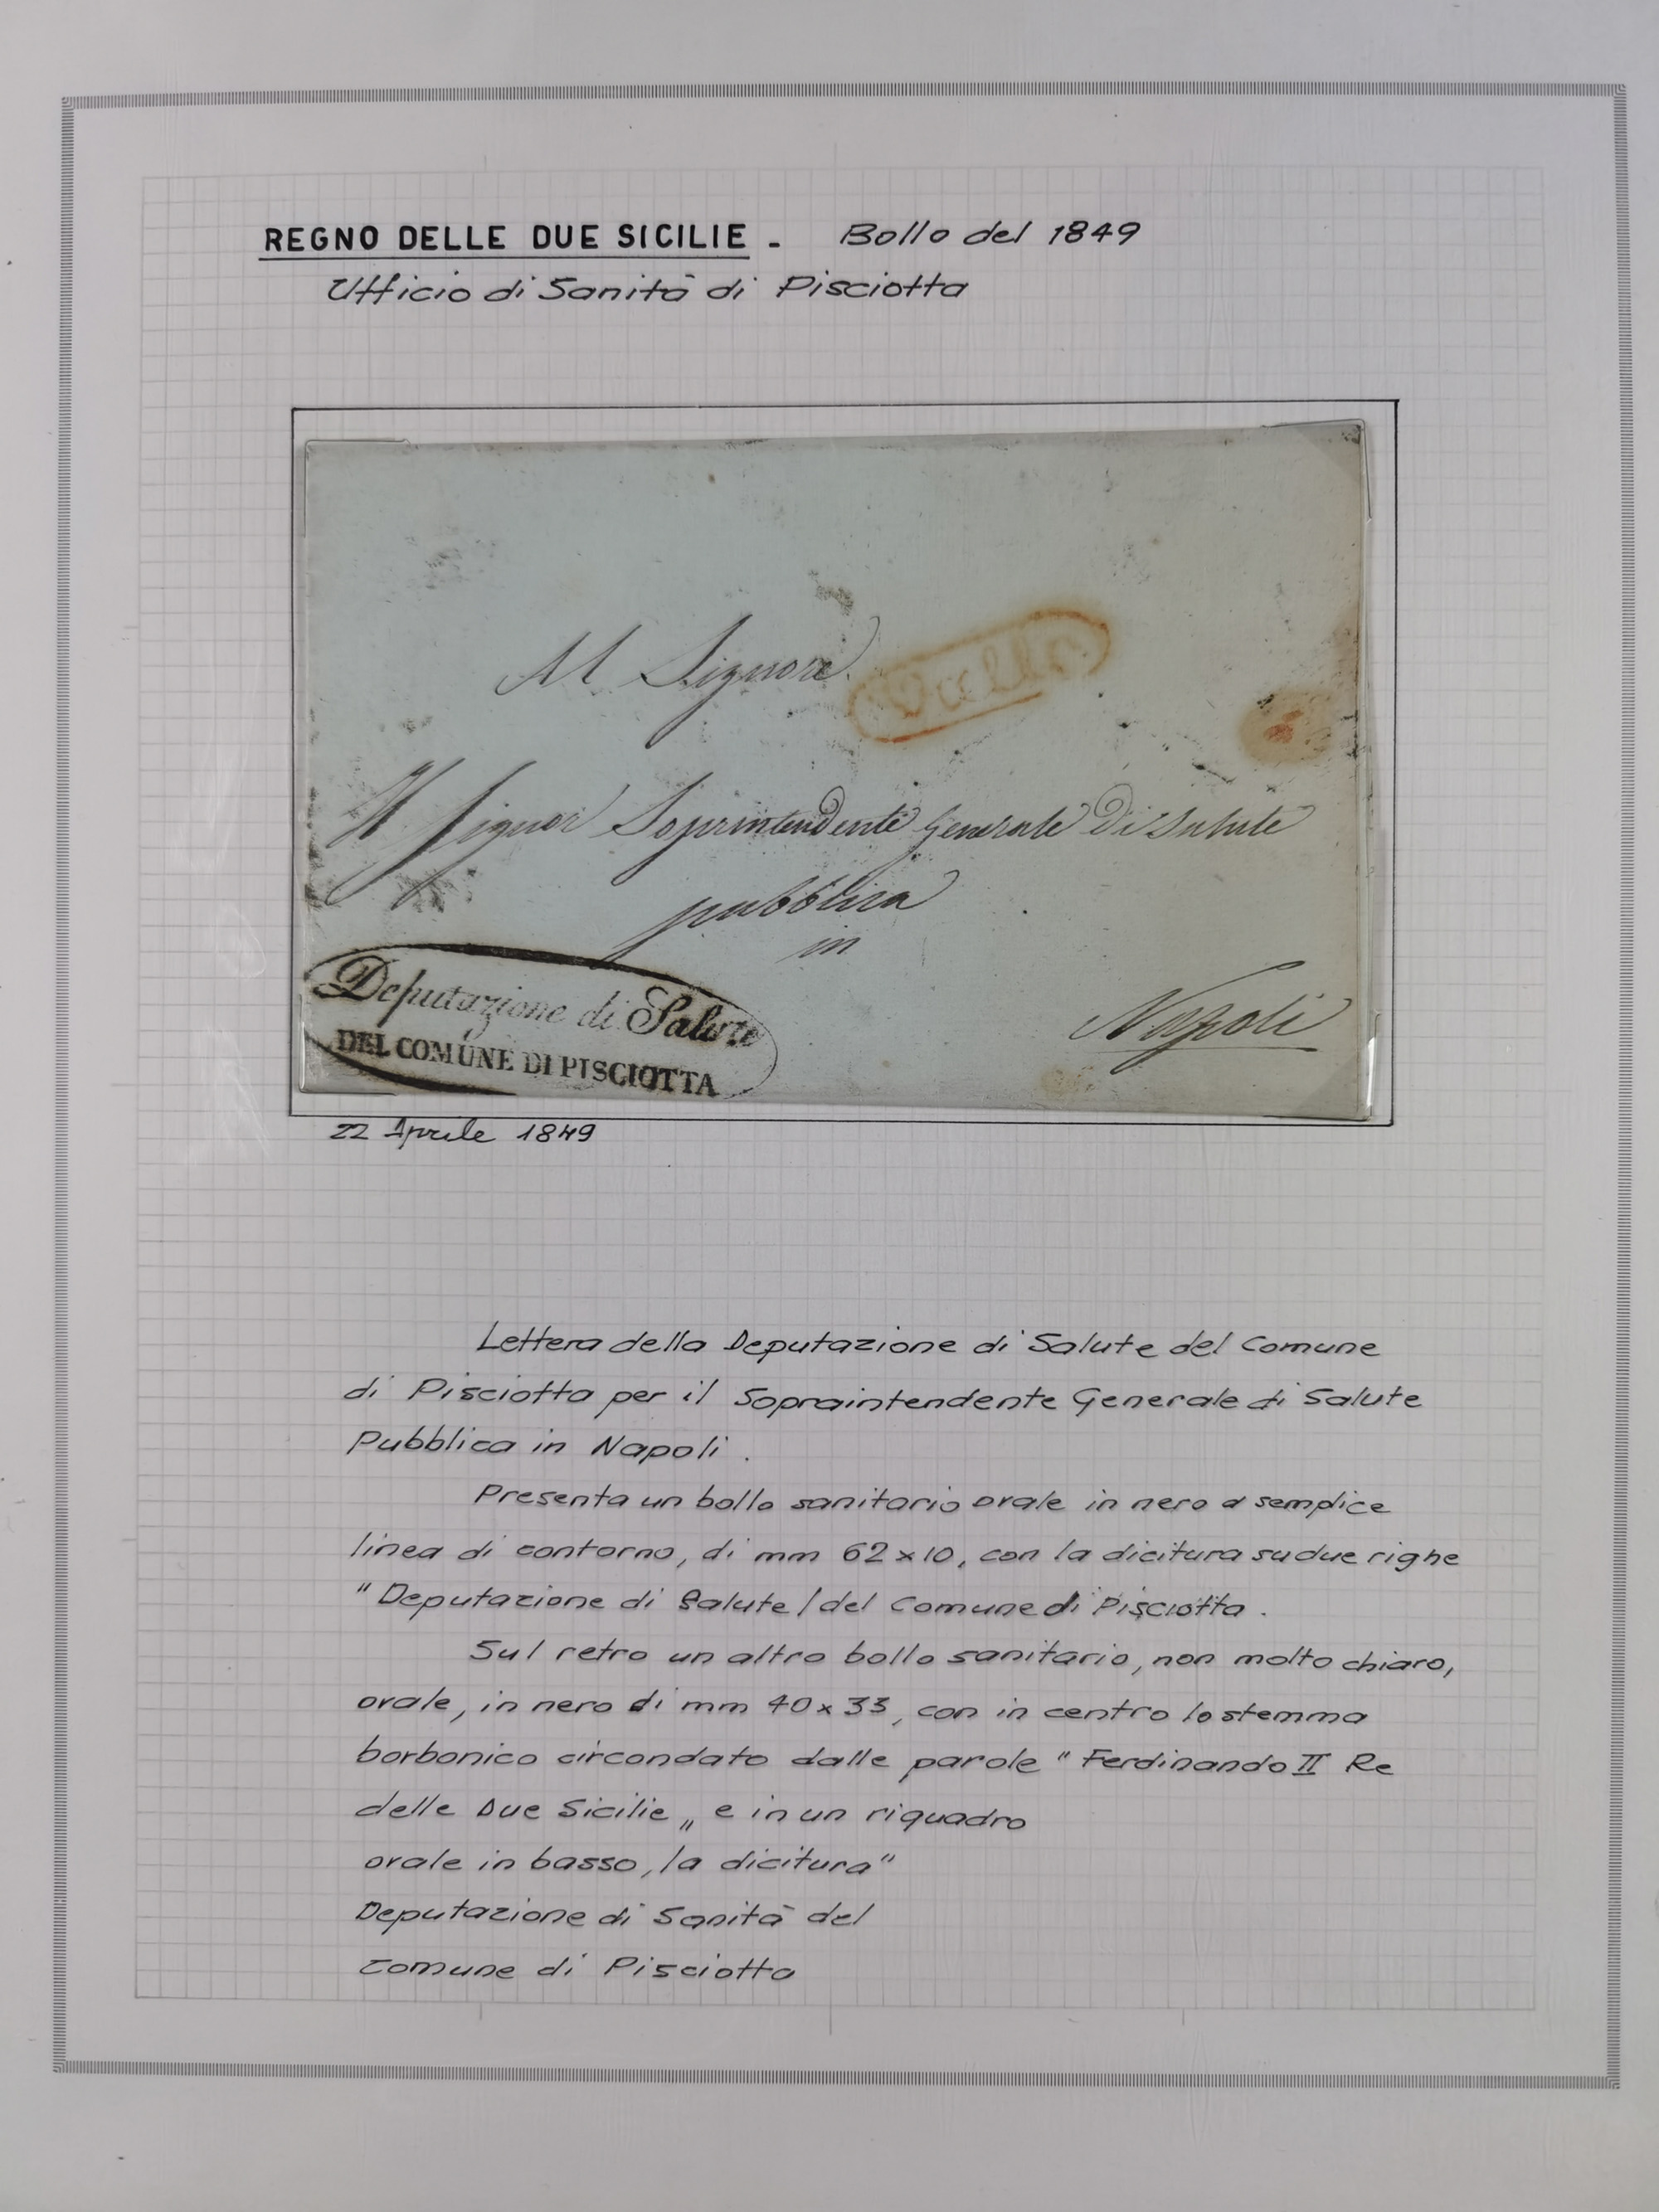 REGNO DELLE DUE SICILIE - Bollo del 1849
Ufficio di Sanità di Pisciotta
Al Signore
Vallo
Il Signor Soprintendente Generale Di Salute
pubblica
in
Napoli
Deputazione di Salute
DEL COMUNE DI PISCIOTTA
22 Aprile 1849
Lettera della Deputazione di Salute del Comune
di Pisciotta per il Sopraintendente Generale di Salute
Pubblica in Napoli.
Presenta un bollo sanitario ovale in nero a semplice
linea di contorno, di mm 62x10, con la dicitura su due righe
"Deputazione di Salute/del Comune di Pisciotta.
Sul retro un altro bollo sanitario, non molto chiaro,
ovale, in nero di mm 40x33, con in centro lo stemma
borbonico circondato dalle parole "Ferdinando II Re
delle Due Sicilie„ e in un riquadro
ovale in basso, la dicitura"
Deputazione di Sanità del
Comune di Pisciotta